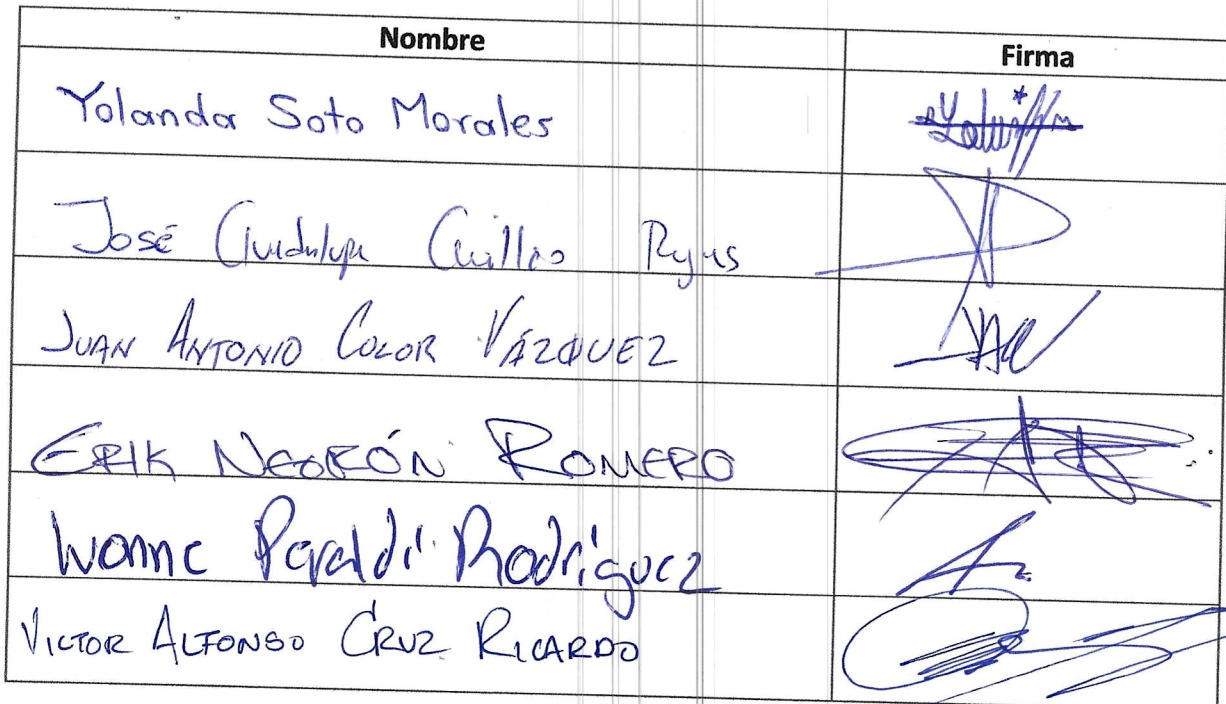 Nombre Firma
Yolanda Soto Morales
José Guadalupe
JUAN ANTONIO COLOR VÁZQUEZ
ERIK NEGRÓN ROMERO
Ivonne Peraldi Rodríguez
VICTOR ALFONSO CRUZ RICARDO